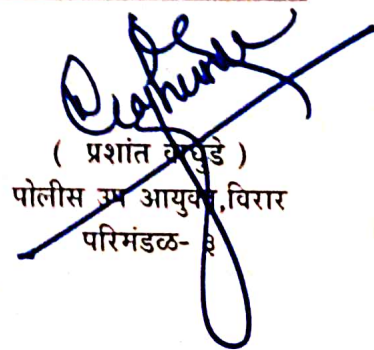 ( प्रशांत वाघुंडे )
पोलीस उप आयुक्त,विरार
परिमंडळ- ३